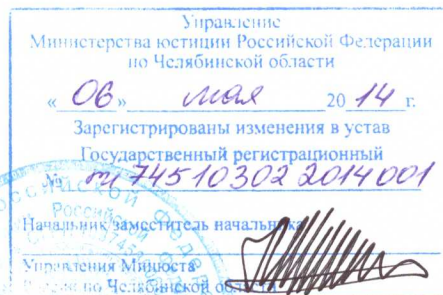 Управление
Министерства юстиции Российской Федерации
по Челябинской области
« 06 » мая 20 14 г.
Зарегистрированы изменения в устав
Государственный регистрационный
№ ru 745103022014001
Начальник/заместитель начальника
Управления Минюста
России по Челябинской области